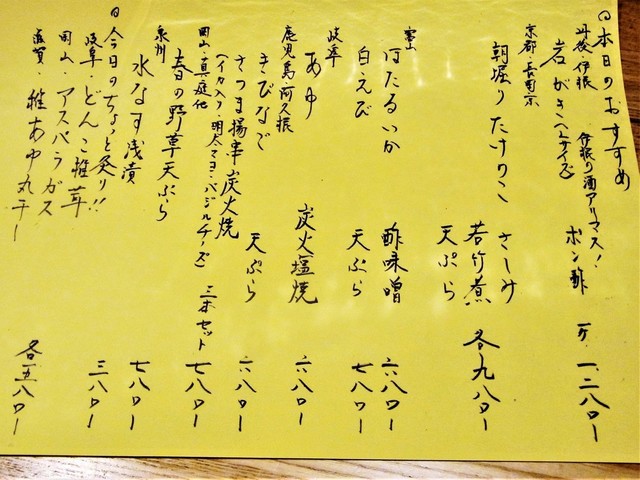 ◎本日のおすすめ
丹後・伊根 伊根の酒アリマス!
岩がき(Lサイズ) ポン酢 一ケ 一、二八〇ー
京都・長岡京
朝堀りたけのこ さしみ
若竹煮 各九八〇ー
天ぷら
富山
ほたるいか 酢味噌 六八〇ー
白えび 天ぷら 七八〇ー
岐阜
あゆ 炭火塩焼 六八〇ー
鹿児島・阿久根
きびなご 天ぷら 六八〇ー
さつま揚串炭火焼
(イカ入り・明太マヨ・バジルチーズ) 三本セット 七八〇ー
岡山・真庭他
春の野草天ぷら 七八〇ー
泉州
水なす浅漬 三八〇ー
◎今日のちょっと炙り!!
岐阜・どんこ椎茸
岡山・アスパラガス
滋賀・稚あゆ丸干し 各五八〇ー